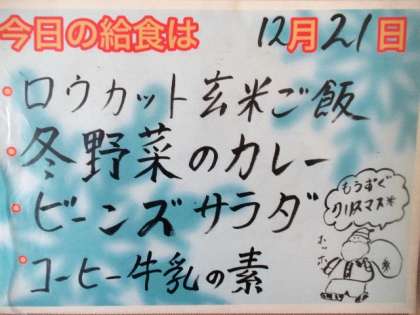 今日の給食は 12月21日
・ロウカット玄米ご飯
・冬野菜のカレー
・ビーンズサラダ
・コーヒー牛乳の素
もうすぐ
クリスマス*
ホッ
ホー